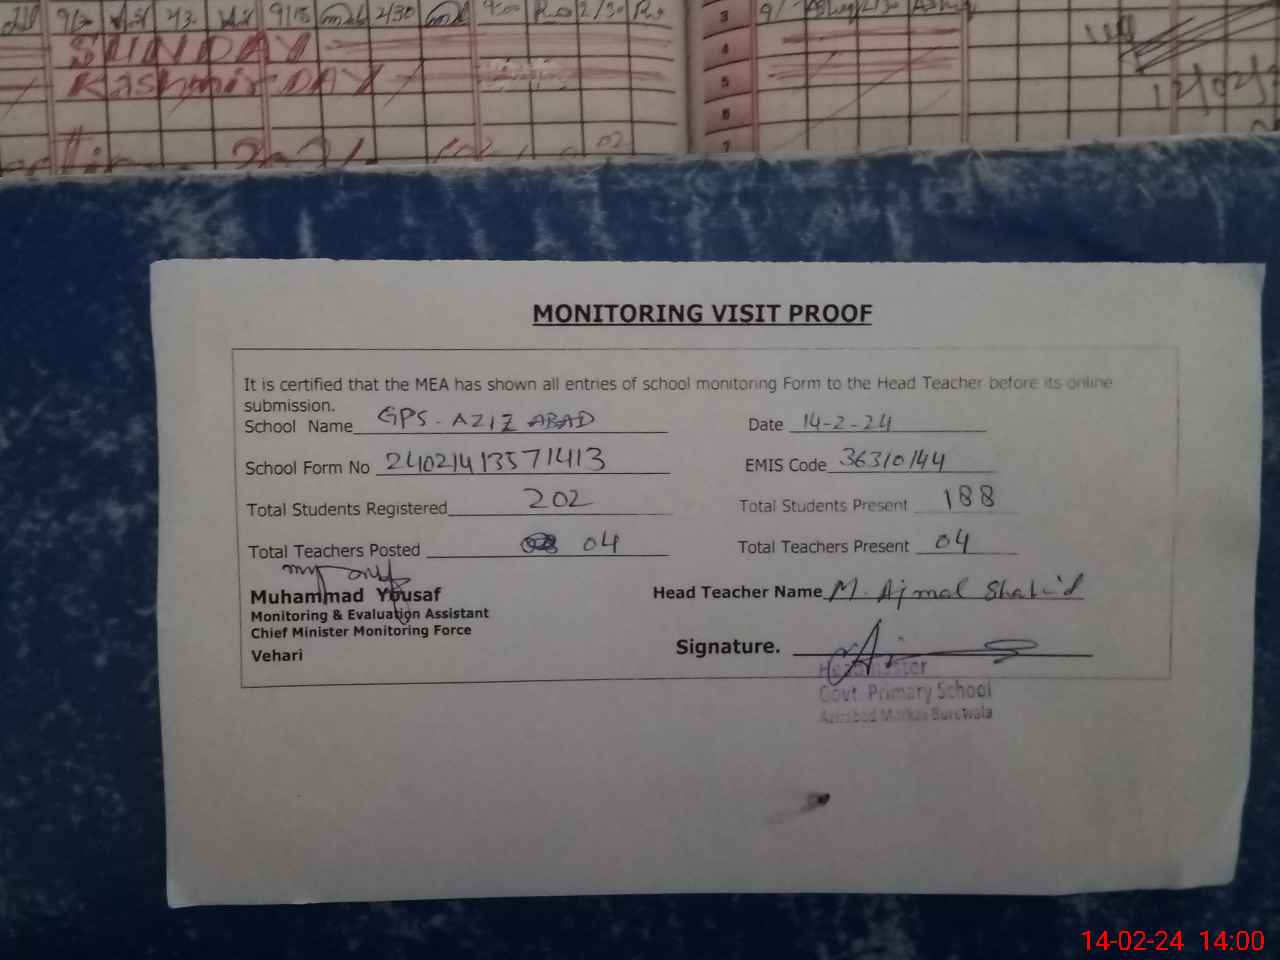 SUNDAY
Kashmir DAY
02
3
4
5
6
7
12/02/
MONITORING VISIT PROOF
It is certified that the MEA has shown all entries of school monitoring Form to the Head Teacher before its online
submission.
School Name GPS - AZIZ ABAD Date 14-2-24
School Form No 24021413571413 EMIS Code 36310144
Total Students Registered 202 Total Students Present 188
Total Teachers Posted 04 Total Teachers Present 04
Muhammad Yousaf Head Teacher Name M. Ajmal Shahid
Monitoring & Evaluation Assistant
Chief Minister Monitoring Force
Vehari Signature.
Headmaster
Govt. Primary School
Azizabad Markaz Burewala
14-02-24 14:00